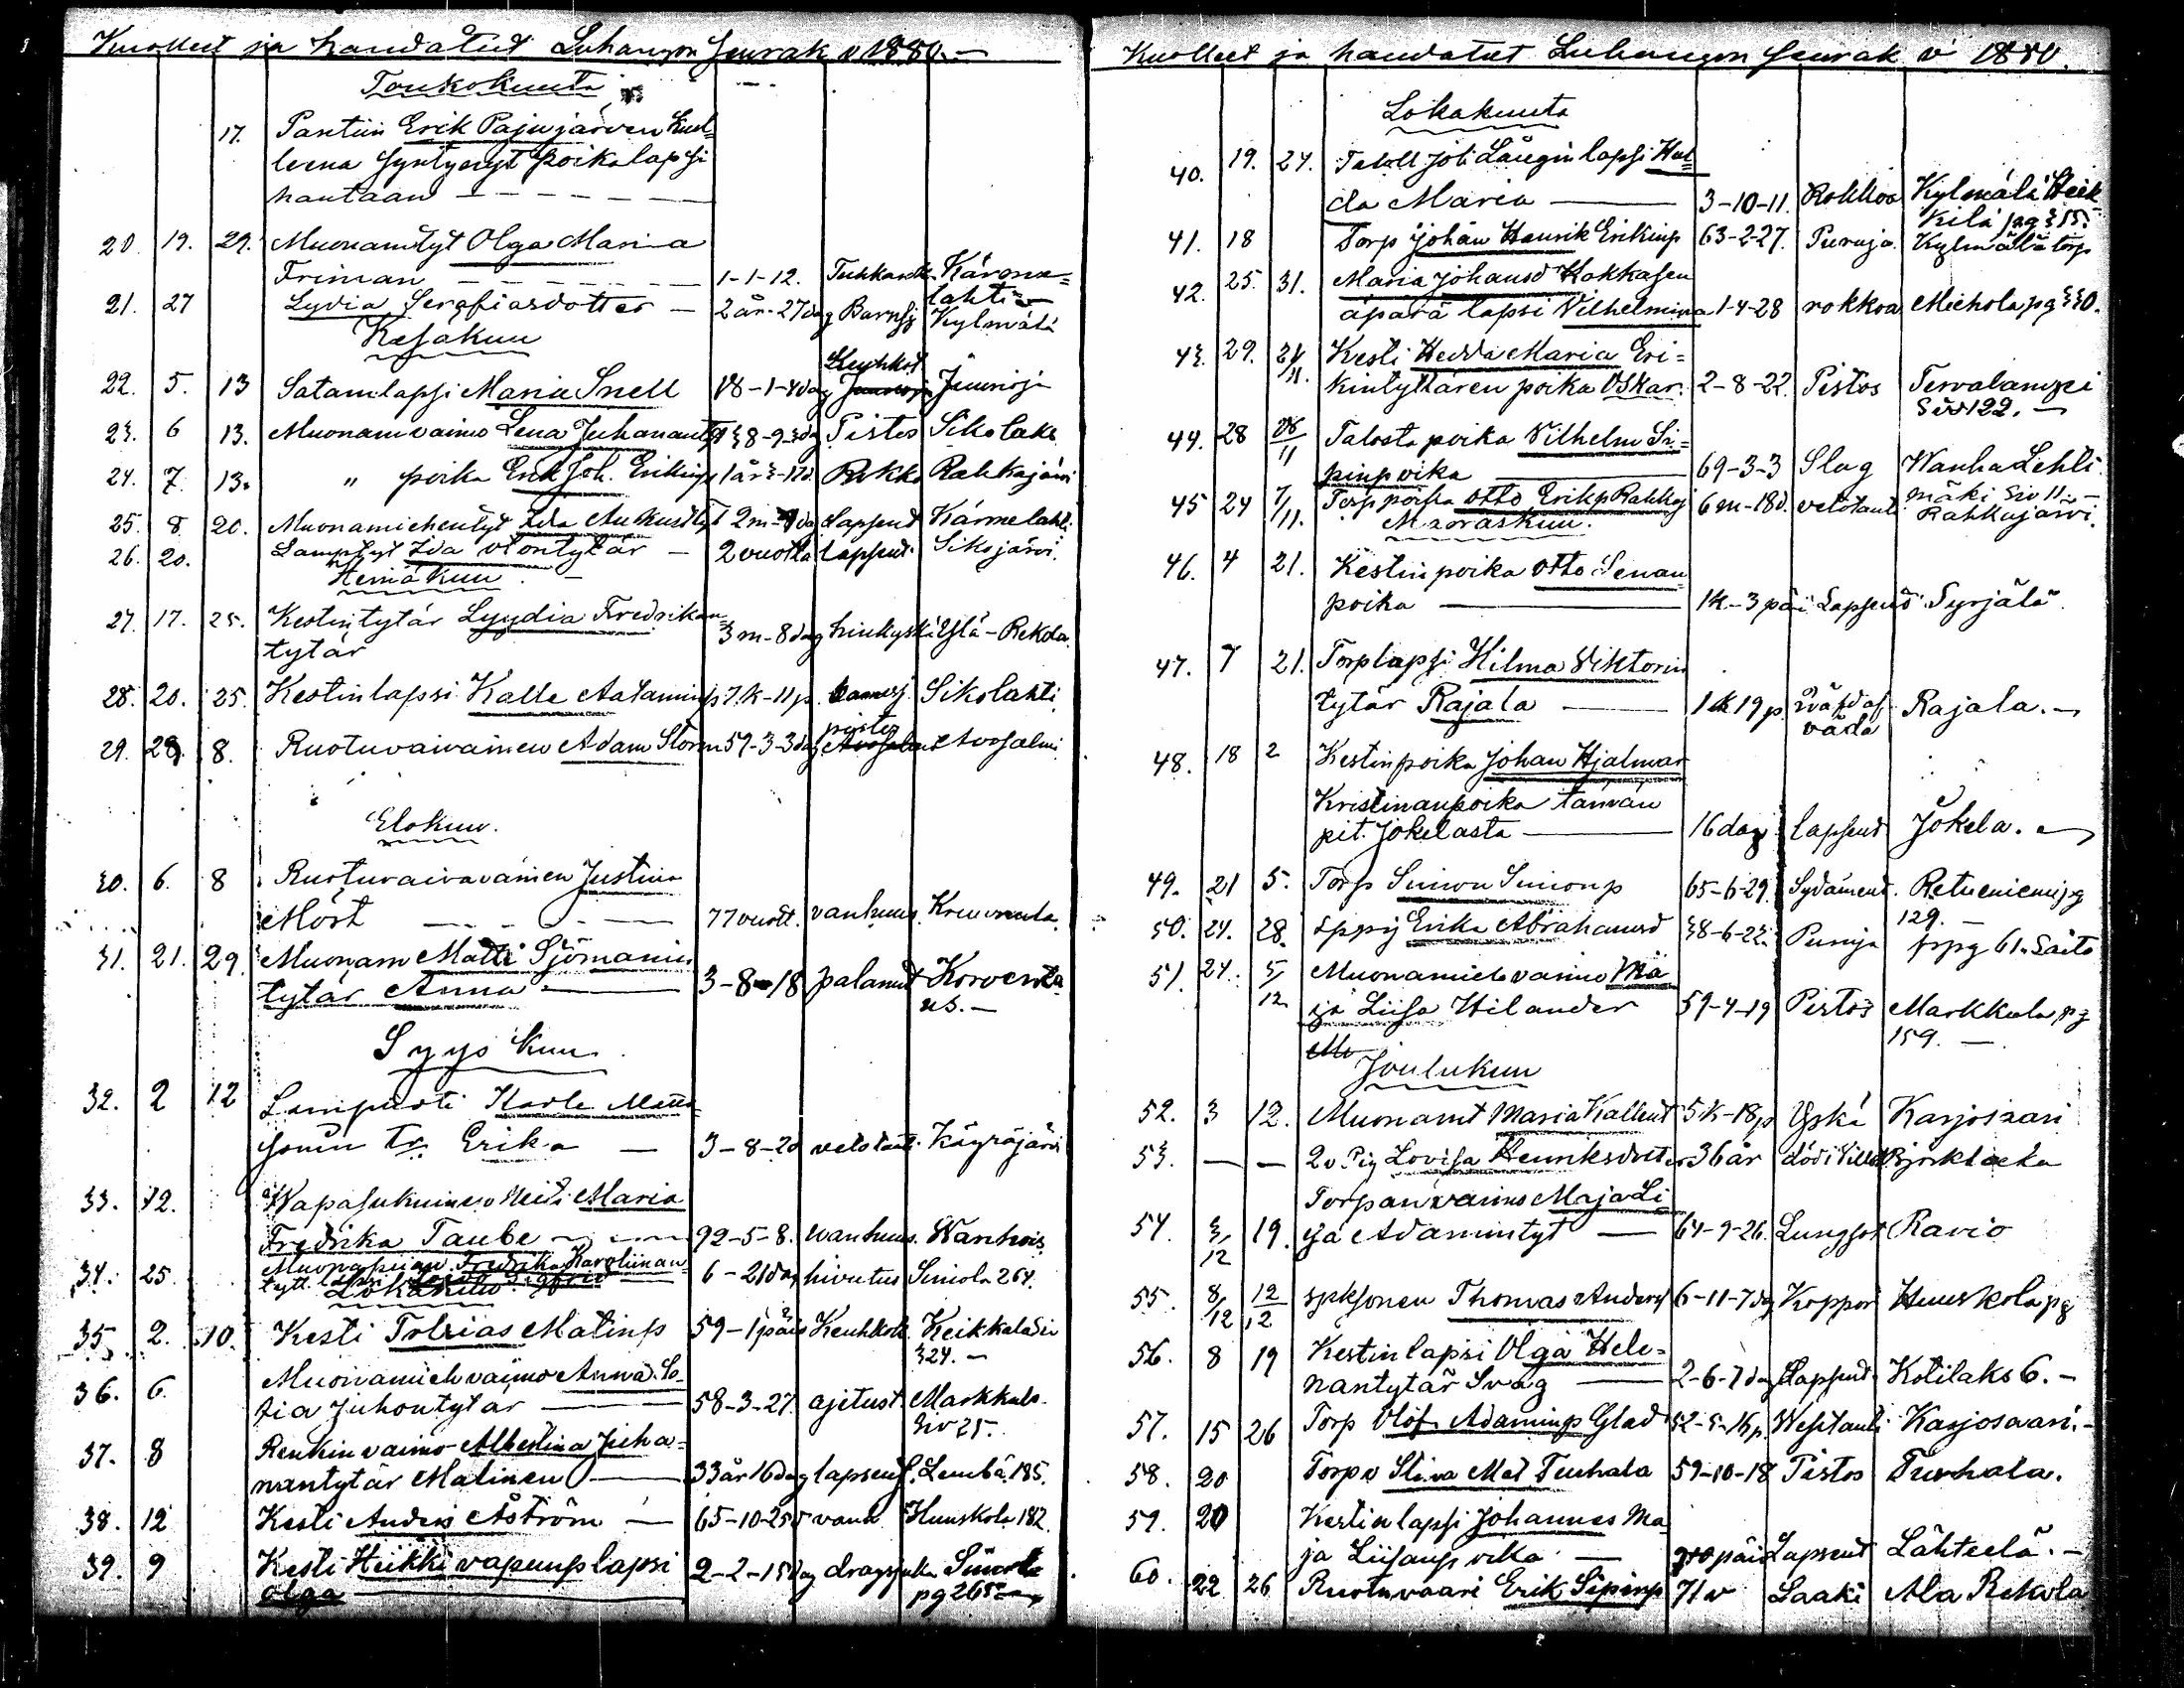 Kuolleet ja haudatud Luhangon Seurak v 1880.-
Toukokuuta
17. Pantiin Erik Pajujärven kuol=
leena syntynyt poikalapsi
hautaan
20. 19. 29. Muonamtyt Olga Maria
Friman 1-1-12. Tuhkarok. Kärene=
lahti
21. 27 Lydia Serafiasdotter 2 år-27dag Barnsj Kylmälä
Kesäkuu
Keuhkot
22. 5. 13 Satamlapsi Maria Snell 18-1-4dag Juurioja
23. 6 13. Muonamvaimo Lena Juhanant 38-9-3dag Pistos Sikolaks
24. 7. 13. " poika Erik Joh. Erikinp 1år 3-17d. Rokko Rahkajärvi
25. 8 20. Muonamiehentyt Ida Aukustist 2m-9da Lapsent Kärnelahti
26. 20. Lamptyt Ida Ottontytär 2 vuotta lapsent Sikojärvi
Heinäkuu.
27. 17. 25. Kestintytär Lyydia Fredrikan
tytär 3m-8dag hinkyskä Ylä-Rekola
28. 20. 25. Kestinlapsi Kalle Aataminp 7.k-11p. barnsj. Sikolahti
pistos
29. 29. 8. Ruotuvaivainen Adam Storm 59-3-3dag Avosalmi Avosalmi
Elokuu.
30. 6. 8 Ruotuvaivavainen Justina
Möst 77 vuott. vanhuus.
31. 21. 29. Muonam Matti Sjömanin
tytär Anna 3-8-18 palanut Korvenka
us.-
Syys kuu
32. 2 12 Lampuoti Kaole Matts
sonin tr. Erika 3-8-20 velotauti. Käyräjärvi
33. 12. Wapasukuinen Neiti Maria
Fredrika Taube 92-5-8. vanhuus. Wanhois
34. 25. Muonapiian Fredrika Karoliinan
tytt. lapsi Sigfrid 6-21dag hivutus Siniola 264.
Lokakuu.
35. 2. 10. Kesti Tobias Matinp 59-1päiv Keuhkot. Keikkala Siv
324.-
36. 6. Muonamieh vaimo Anna So-
fia Juhontytär 58-3-27. ajetust. Markkula
Siv 25.
37. 8 Renkin vaimo Albertina Juha=
nantytär Matinen 33år 16dag lapsent. Lembä. 185.
38. 12 Kesti Anders Åström 65-10-25d vanh. Huuskola 182.
39. 9 Kesti Heikki vapunp lapsi 2-2-15dag dragsjuka Siniola
olga pg 265
Kuolleet ja haudatut Luhangon seurak v 1880.
Lokakuuta
40. 19. 24. Taloll joh Långin lapsi Hul=
da Maria 3-10-11. Rokkoa Kylmälä Heik
kilä pag 315.
41. 18 Torp Johan Henrik Erikinp 63-2-27. Puruja. Kylmälä torp
42. 25. 31. Maria Johansd Hokkasen
äpärä lapsi Vilhelmina 1-4-28 rokkoa Miehola pg 330.
43. 29. 21/11. Kesti Hedda Maria Eri=
kintyttären poika Oskar. 2-8-22. Pistos Tervalamppi
Siv 122.-
44. 28 18/11 Talosta poika Vilhelm Si=
pinpoika 69-3-3 Slag Wanha Lehti
mäki Siv 11.-
45 24 7/11. Torp poika Otto Erikp Rahkaj 6m-18d. velotauti Rahkajärvi.
Marraskuu.
46. 4 21. Kestinpoika Otto Senan
poika 1k-3päi Lapsend Syrjälä.
47. 7 21. Torplapsi Hilma Viktorin
tytär Rajala 1k 19p Rajala.-
48. 18 2 Kestinpoika Johan Hjalmar
Kristinanpoika tämän
pit. Jokelasta 16dag lapsend Jokela.
49. 21 5. Torp Simon Simonp 65-6-29. Sydämend. Retueniemi pg
129.-
50. 24. 28. Erika Abrahamsd 38-6-22. Puruja pg 61. Saito
51. 24. 5/12 Muonamieh vaimo Ma
ja Liisa Hilander 59-4-19 Pistos Markkula pg
159.-
Joulukuu
52. 3 12. Muonamt Maria Kallent 5k-18p Yskä Karjosaari
53. - - Lovisa Henriksdotter 36år
Torpan vaimo Maja Li
54. 3/12 19. isa Adamintyt 64-9-26. Lungsot Ravio
55. 8/12 12/12 Thomas Anders 6-11-7dag Koppor Huuskola pg
56. 8 19 Kestin lapsi Olga Hele=
nantytär Svag 2-6-7dag Lapsend Kotilaks 6.-
57. 15 26 Torp Olof Adaminp Glad 52-5-16p. Wesitauti Karjosaari.-
58. 20 Torpv Stiva Mat Tuuhala 59-10-18 Pistos Tuuhala.
59. 20 Kestin lapsi Johannes Ma
ja Liisanp oika päiv Lapsent Lähteelä.-
60. 22 26 Ruotuvaari Erik Sipinp 71v Laaki Ala Rekola